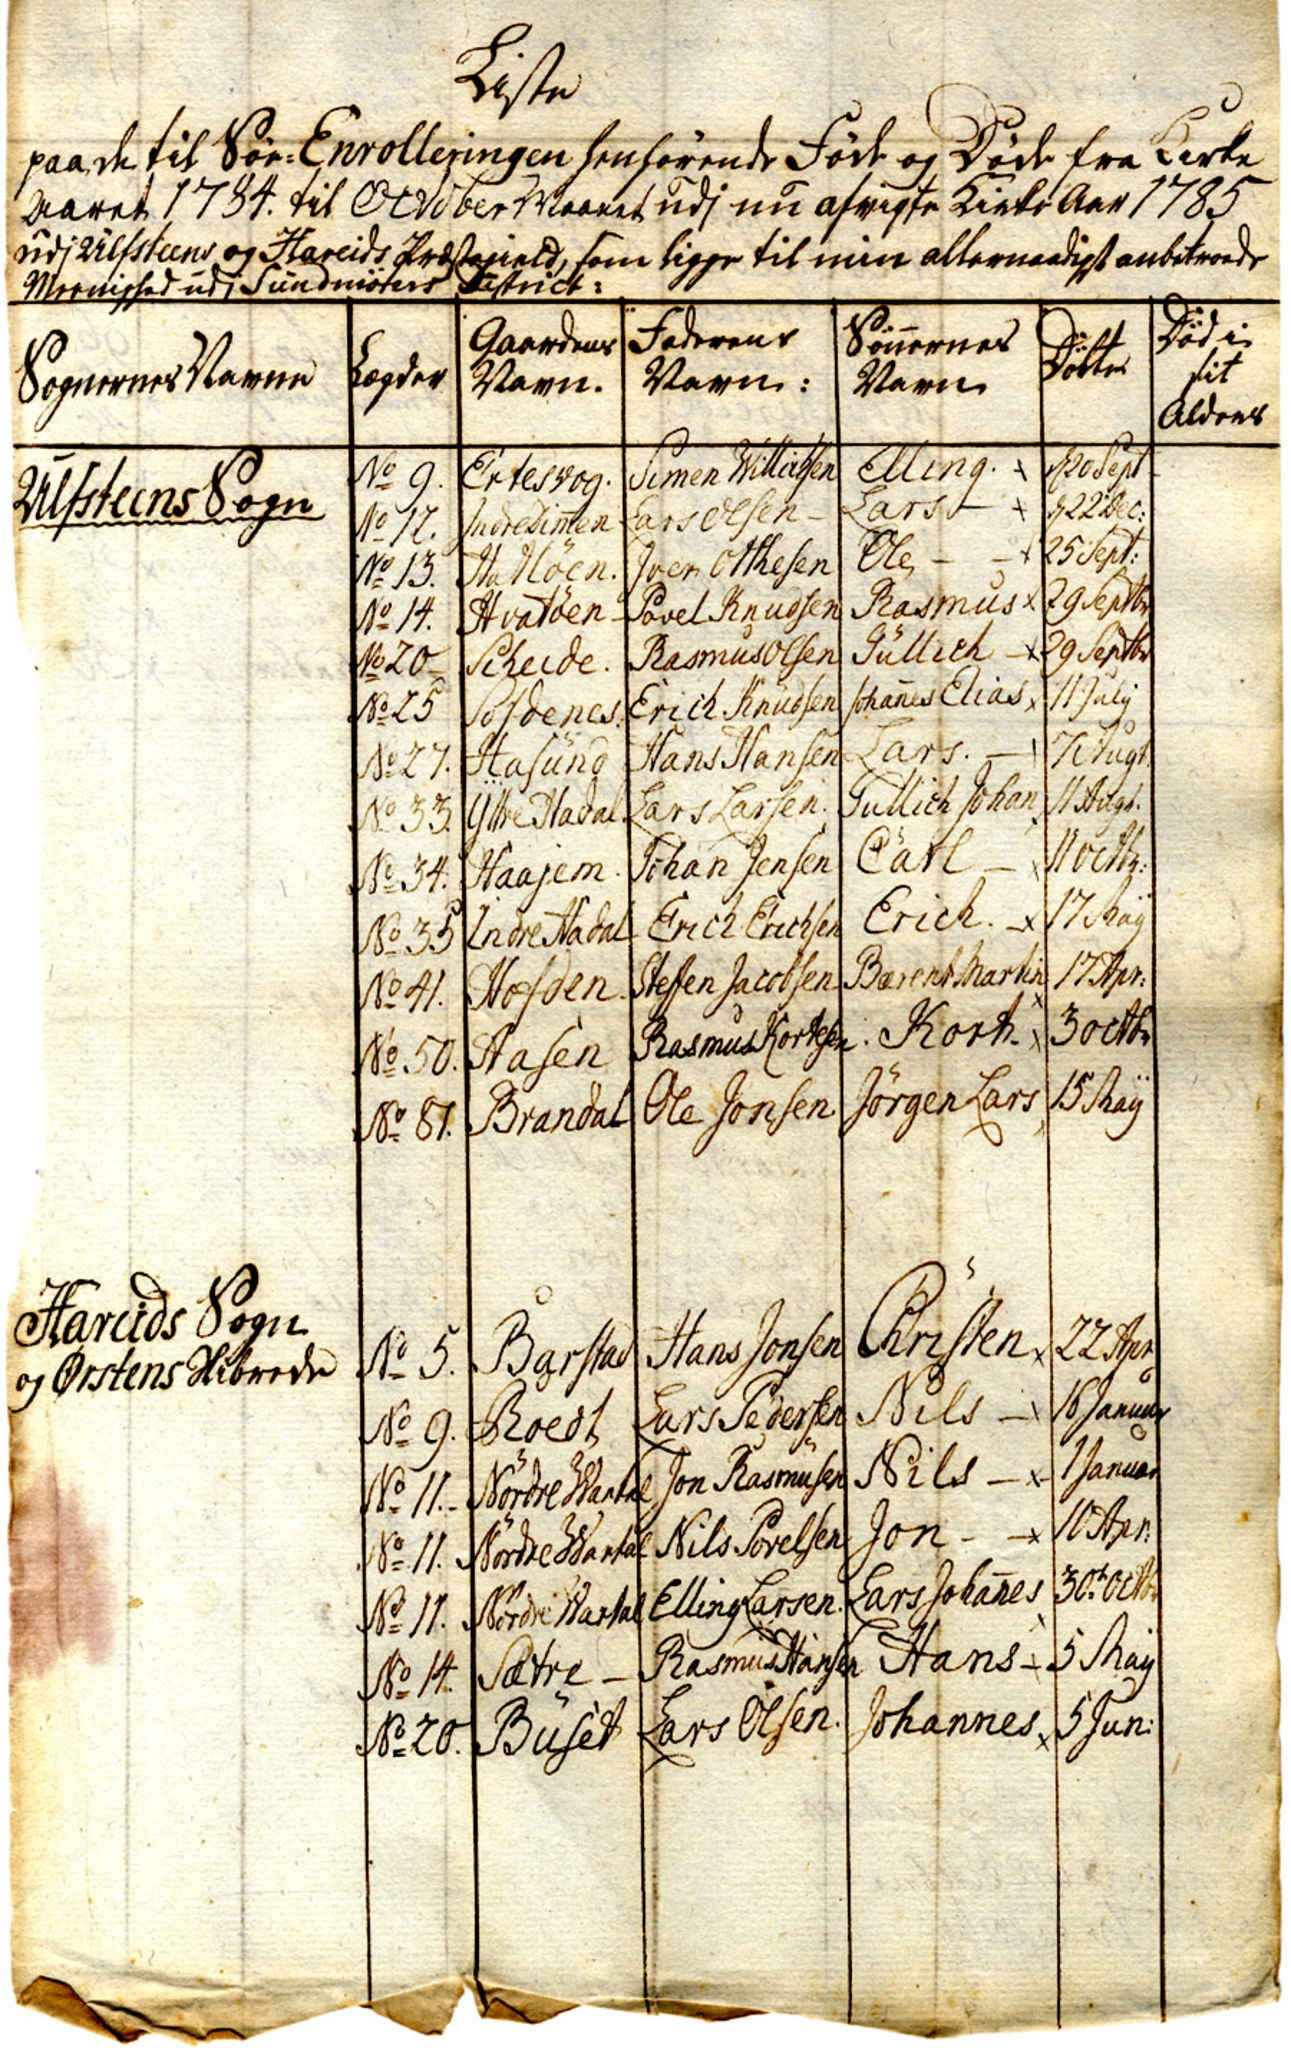 Liste
paa de til Söe-Enrolleringen henhörende Föde og Döde fra Kirke
Aaret 1784. til October Maanet udj nu afvigte Kirke Aar 1785
udj Ulfsteens og Hareids Præstegield, som ligge til min allernaadigst anbetroede
Meenighed udj Sundmöers District:
Sognernes Navne Lægder Gaardens Navn. Faderens Navn: Sönnernes Navn Döbte Död i sit Alders
Ulfsteens Sogn No 9. Ertesvog. Simen Willichsen Elling. x 20 Sept
No 12. Indre Dimen Lars Olsen - Lars - x 22 Dec:
No 13. Ha Iver Otthesen Ole - - x 25 Sept:
No 14. Povel Knudsen Rasmus x 29 Septbr
No 20 Scheide. Rasmus Olsen Güllich - x 29 Septbr
No 25 Erich Knudsen Johañes Elias x 11 July
No 27. Hasünd Hans Hansen Lars. - x 7 Augt.
No 33. Ytre Hadal Lars Larsen. Gullich Johan 11 Augt.
No 34. Haajem. Johan Jensen Carl - x 11 octb:
No 35 Indre Hadal Erich Erichsen Erich. - x 17 Maÿ
No 41. Steffen Jacobsen Bærent Martin x 17 Apr:
No 50. Aasen Rasmus Kortesen. Kort. x 3 octbr
No 81. Brandal Ole Jonsen Jörgen Lars x 15 Maÿ
Hareids Sogn
og Ørstens No 5. Barstad Hans Jonsen Christen x 22 Apr
No 9. Roedt Lars Pedersen Nils - x 16 Januar
No 11. - Nördre Wartal Jon Rasmusen Nils - x 1 Januar
No 11. Nördre Wartal Nils Povelsen Jon - - x 10 Apr.
No 11. Nördre Wartal Elling Larsen. Lars Johañes 30 octbr
No 14. Sætre - Rasmus Hansen Hans - x 5 Maÿ
No 20. Büset Lars Olsen. Johannes x 5 Jun: